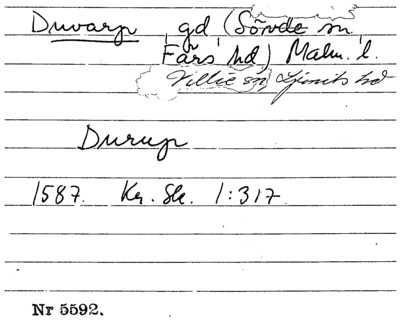 Duvarp gd (Sövde sn
Färs hd) Malm. l.
Villie sn Ljunits hd
Durup
1587. Kr. Sk. 1:317.
Nr 5592.